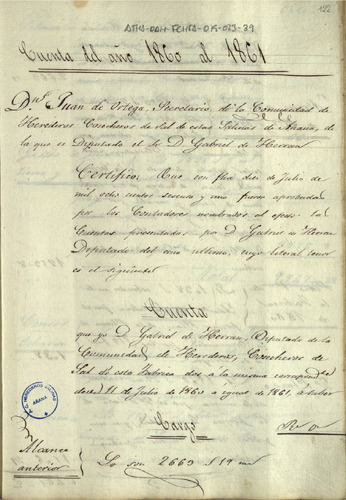 122
Cuenta del año 1860 al 1861
Dn. Juan de Ortega, Secretario de la Comunidad de
Herederos Concheros de Sal de estas Salinas de Añana, de
la que es Diputado el Sr. D. Gabriel de Herran
Certifico: Que con fha diez de Julio de
mil ocho cientos sesenta y uno fueron aprobadas
por los Contadores nombrados al efecto las
Cuentas presentadas por D. Gabriel de Herran
Diputado del año ultimo, cuyo literal tenor
es el siguiente
Cuenta
que yo D. Gabriel de Herran, Diputado de la
Comunidad de Herederos, Concheros de
Sal de esta Fabrica doy a la misma
desde 11 de Julio de 1860 a igual de 1861, a saber
Cargo
Alcance
anterior
Lo son 2669 19
AÑANA